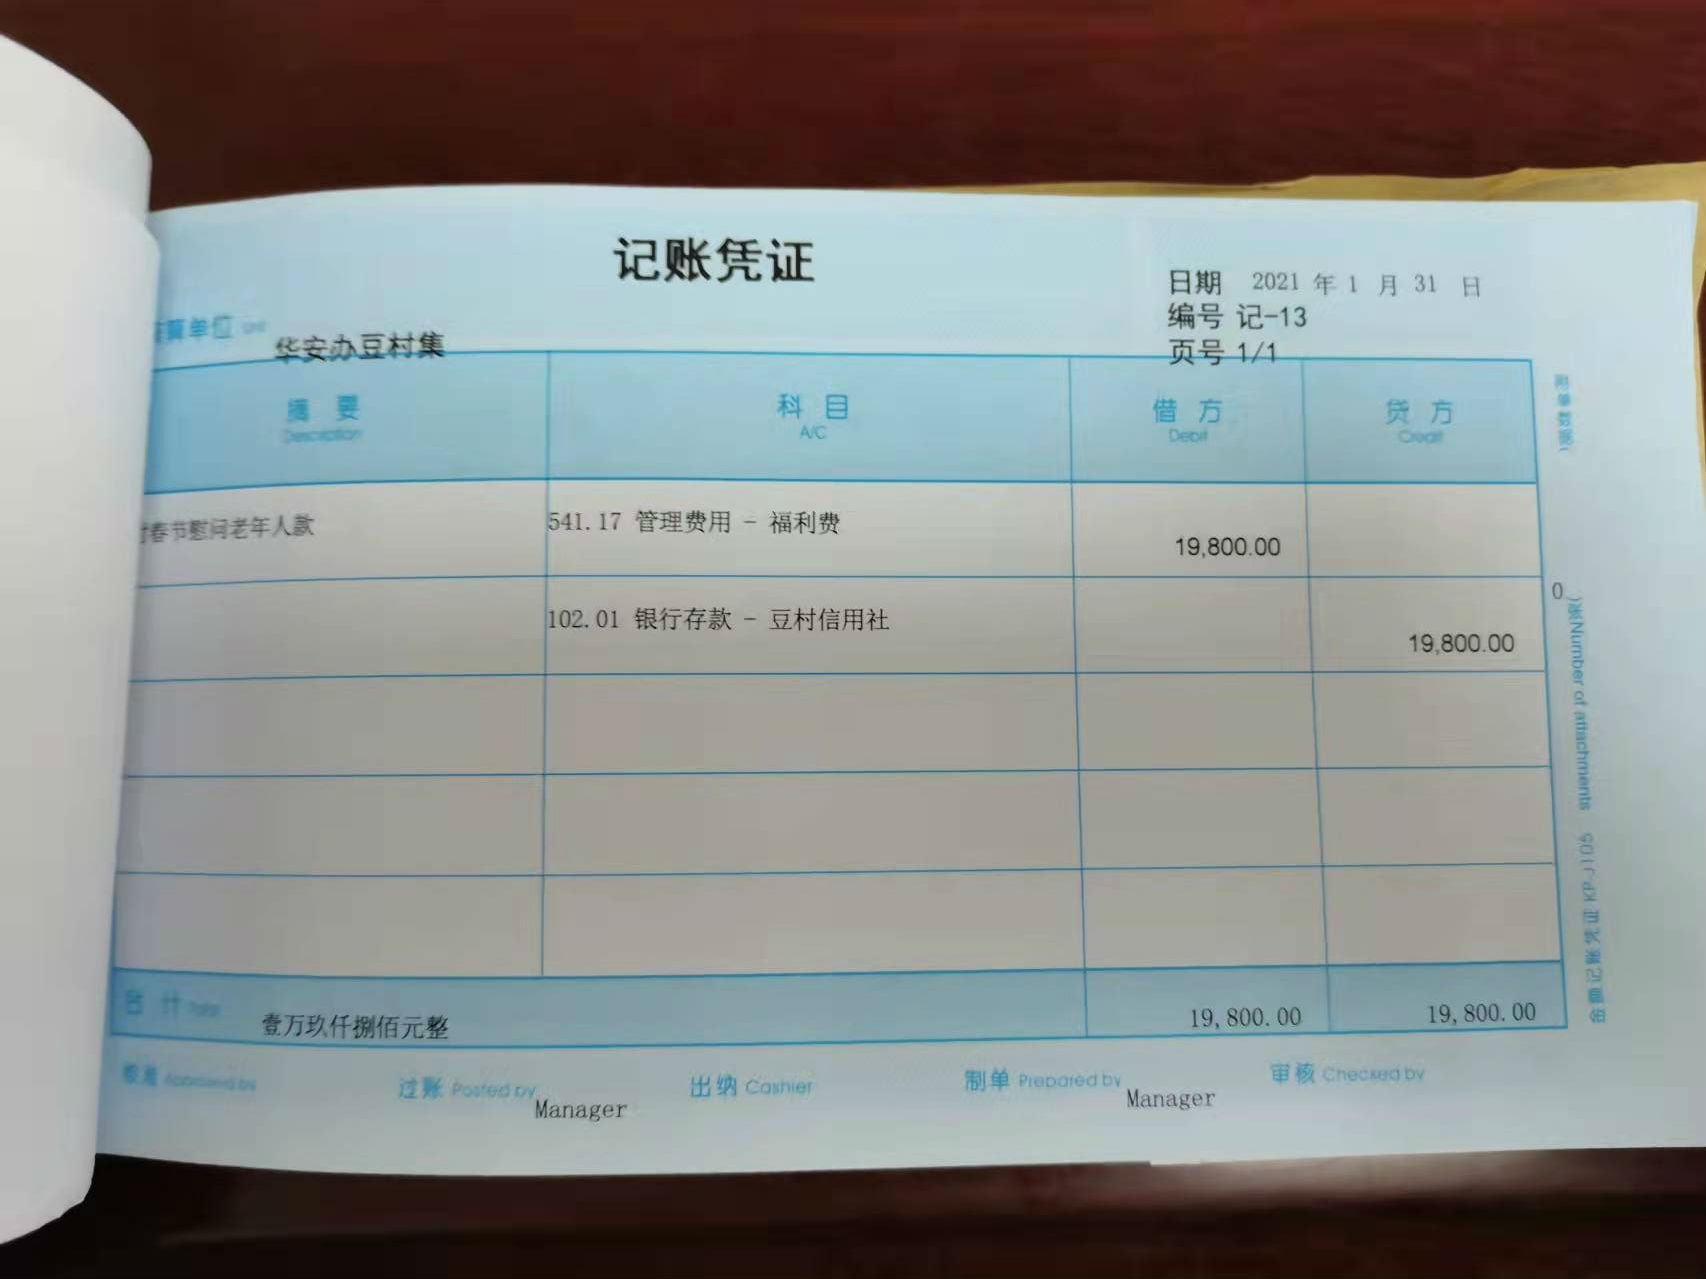 记账凭证
日期 2021 年 1 月 31 日
编号 记-13
核算单位 Unit 华安办豆村集
页号 1/1
摘要 科目 借方 贷方
Description A/C Debit Credit
附单数据(
春节慰问老年人款 541.17 管理费用 - 福利费 19,800.00
102.01 银行存款 - 豆村信用社 19,800.00
0
张)Number of attachments
记账凭证 KP-J105
合计 Total 壹万玖仟捌佰元整 19,800.00 19,800.00
核准 Approved by 过账 Posted by Manager 出纳 Cashier 制单 Prepared by Manager 审核 Checked by